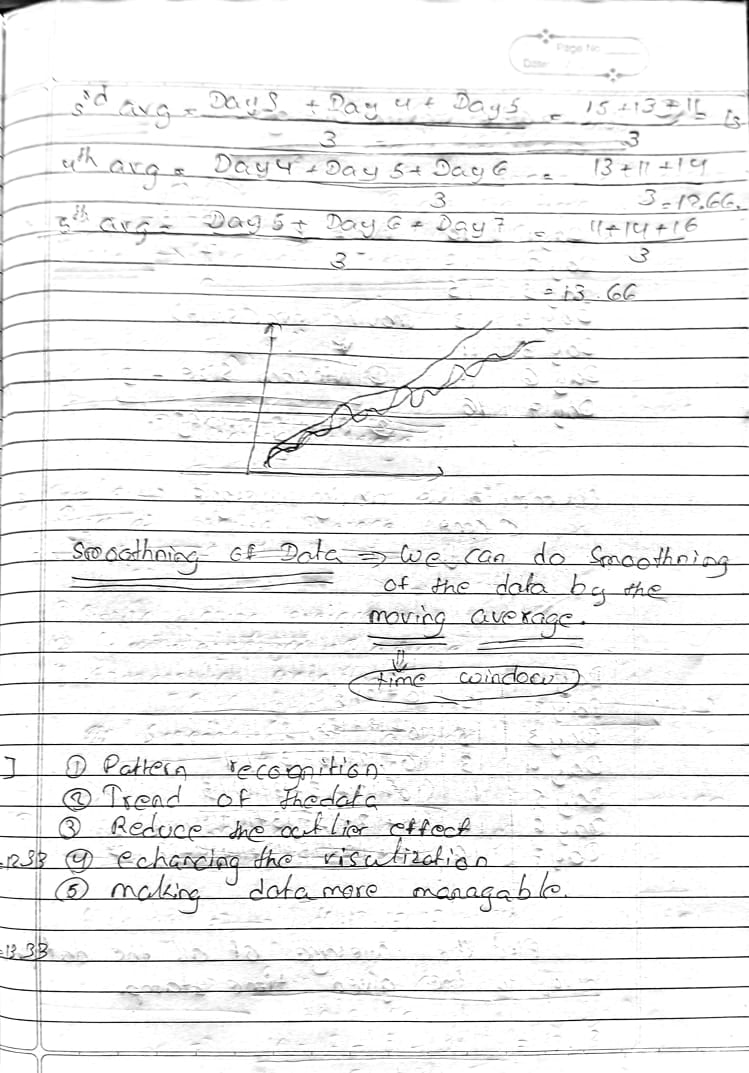 Page No.
Date:
3'd avg = Day 3 + Day 4 + Day 5 = 15+13+11 13
3 3
4th avg = Day 4 + Day 5 + Day 6 = 13+11+14
3 3 = 12.66.
5th avg = Day 5 + Day 6 + Day 7 = 11+14+16
3 3
= 13.66
Smoothning of Data ⇒ We can do Smoothning
of the data by the
moving average.
⇓
time window
] ① Pattern recognition
② Trend of thedata
③ Reduce the outlier effect
12.33 ④ echancing the visulization
⑤ making data more managable.
=13.33